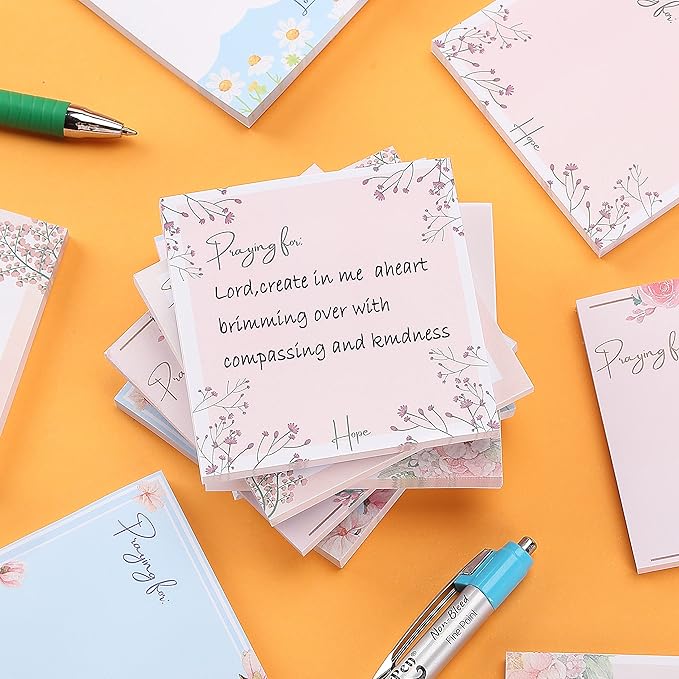 Hope
Praying for:
Lord,create in me aheart
brimming over with
compassing and kmdness
Hope
Praying for:
Praying for:
Non-Bleed
Fine Point